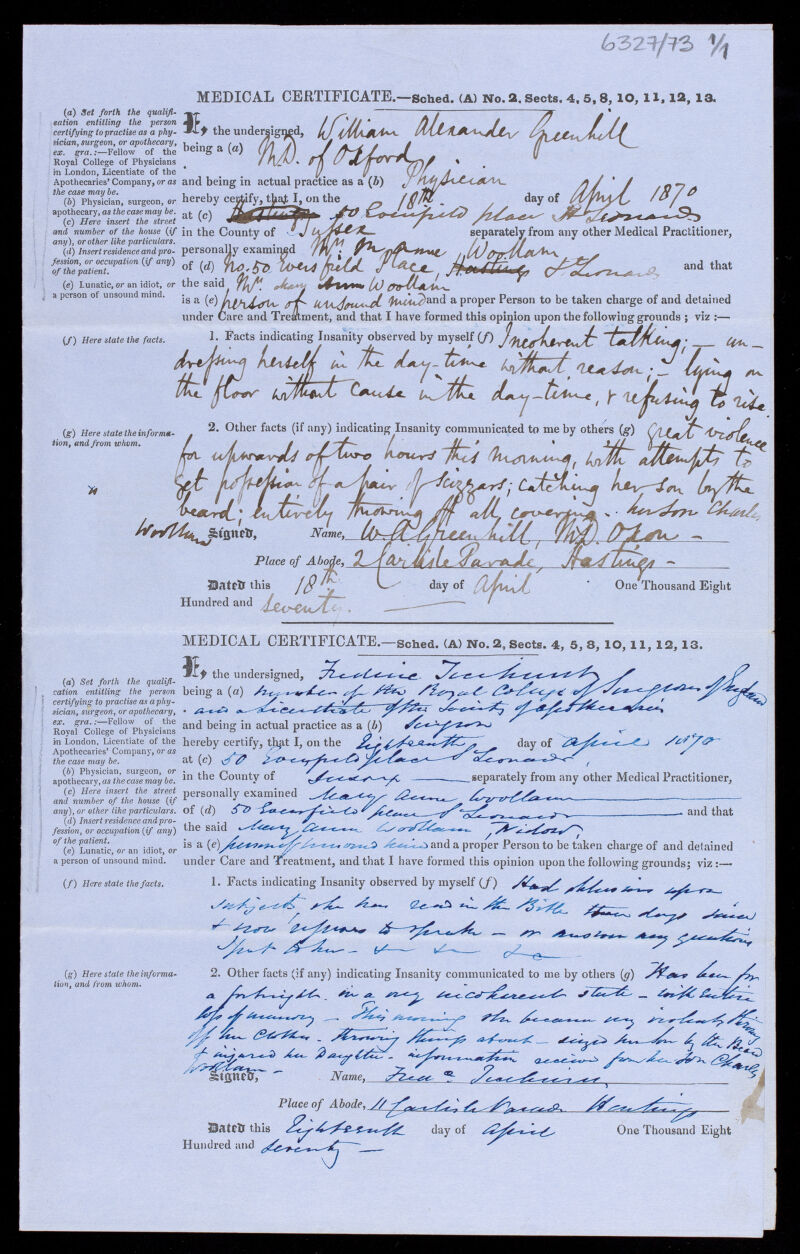 6327/73 1/1
MEDICAL CERTIFICATE.—Sched. (A) No. 2, Sects. 4, 5, 8, 10, 11, 12, 13.
(a) Set forth the qualifi-
cation entitling the person
certifying to practise as a phy-
sician, surgeon, or apothecary,
ex. gra.:—Fellow of the
Royal College of Physicians
in London, Licentiate of the
Apothecaries' Company, or as
the case may be.
(b) Physician, surgeon, or
apothecary, as the case may be.
(c) Here insert the street
and number of the house (if
any), or other like particulars.
(d) Insert residence and pro-
fession, or occupation (if any)
of the patient.
(e) Lunatic, or an idiot, or
a person of unsound mind.
I, the undersigned, William Alexander Greenhill
being a (a) M.D. of Oxford
and being in actual practice as a (b) Physician
hereby certify, that I, on the 18th day of April 1870
at (c) Hastings 50 Eversfield place St Leonards
in the County of Sussex separately from any other Medical Practitioner,
personally examined Mrs M. Anne Woollam
of (d) No. 50 Eversfield Place, Hastings St Leonards and that
the said Mrs. Mary Ann Woollam
is a (e) person of unsound mind and a proper Person to be taken charge of and detained
under Care and Treatment, and that I have formed this opinion upon the following grounds; viz:—
(f) Here state the facts.
1. Facts indicating Insanity observed by myself (f) Incoherent talking; — un-
dressing herself in the day-time without reason; — lying on
the floor without cause in the day-time, & refusing to rise.
(g) Here state the informa-
tion, and from whom.
2. Other facts (if any) indicating Insanity communicated to me by others (g) great violence
for upwards of two hours this morning, with attempts to
get possession of a pair of scizzars; catching her son by the
beard; entirely throwing off all covering. her son Charles
Woollam
Signed, Name, W A Greenhill, M.D. Oxon —
Place of Abode, 2 Carlisle Parade, Hastings —
Dated this 18th day of April One Thousand Eight
Hundred and seventy.
MEDICAL CERTIFICATE.—Sched. (A) No. 2, Sects. 4, 5, 8, 10, 11, 12, 13.
(a) Set forth the qualifi-
cation entitling the person
certifying to practise as a phy-
sician, surgeon, or apothecary,
ex. gra.:—Fellow of the
Royal College of Physicians
in London, Licentiate of the
Apothecaries' Company, or as
the case may be.
(b) Physician, surgeon, or
apothecary, as the case may be.
(c) Here insert the street
and number of the house (if
any), or other like particulars.
(d) Insert residence and pro-
fession, or occupation (if any)
of the patient.
(e) Lunatic, or an idiot, or
a person of unsound mind.
I, the undersigned, Ticehurst
being a (a) member of the Royal College of Surgeons of England
and a Licentiate of the Society of Apothecaries
and being in actual practice as a (b) Surgeon
hereby certify, that I, on the Eighteenth day of April 1870
at (c) 50 Eversfield place St Leonards,
in the County of Sussex separately from any other Medical Practitioner,
personally examined Mary Anne Woollam
of (d) 50 Eversfield place St Leonards and that
the said Mary Anne Woollam, Widow,
is a (e) person of unsound mind and a proper Person to be taken charge of and detained
under Care and Treatment, and that I have formed this opinion upon the following grounds; viz:—
(f) Here state the facts.
1. Facts indicating Insanity observed by myself (f) Had delusions upon
subjects, she has read in the Bible days since
& now refuses to speak — or answer any questions
I put to her — &c &c &c
(g) Here state the informa-
tion, and from whom.
2. Other facts (if any) indicating Insanity communicated to me by others (g) Has been for
a fortnight in a very incoherent state — with entire
loss of memory — This morning she became very violent, throwing
off her clothes — throwing things about — seized her son by the Beard
& injured her Daughter — information received from her son Charles
Woollam —
Signed, Name, Fred. Ticehurst
Place of Abode, 11 Carlisle Parade Hastings
Dated this Eighteenth day of April One Thousand Eight
Hundred and seventy —